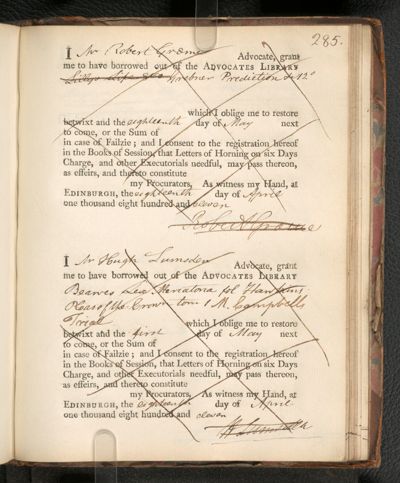 285.
I Mr Robert Græme Advocate, grant
me to have borrowed out of the ADVOCATES LIBRARY
Lillys Life &c Prediction 12o
which I oblige me to restore
betwixt and the eighteenth day of May next
to come, or the Sum of
in case of Failzie; and I consent to the registration hereof
in the Books of Session, that Letters of Horning on six Days
Charge, and other Executorials needful, may pass thereon,
as effeirs, and thereto constitute
my Procurators, As witness my Hand, at
EDINBURGH, the eighteenth day of April
one thousand eight hundred and eleven
Robert Græme
I Mr Hugh Lumsden Advocate, grant
me to have borrowed out of the ADVOCATES LIBRARY
Beawes Lex Mercatoria fol Hawkins
Pleas of the Crown tom 1 M. Campbells
Trial which I oblige me to restore
betwixt and the first day of May next
to come, or the Sum of
in case of Failzie; and I consent to the registration hereof
in the Books of Session, that Letters of Horning on six Days
Charge, and other Executorials needful, may pass thereon,
as effeirs, and thereto constitute
my Procurators, As witness my Hand, at
EDINBURGH, the eighteenth day of April
one thousand eight hundred and eleven
H Lumsden